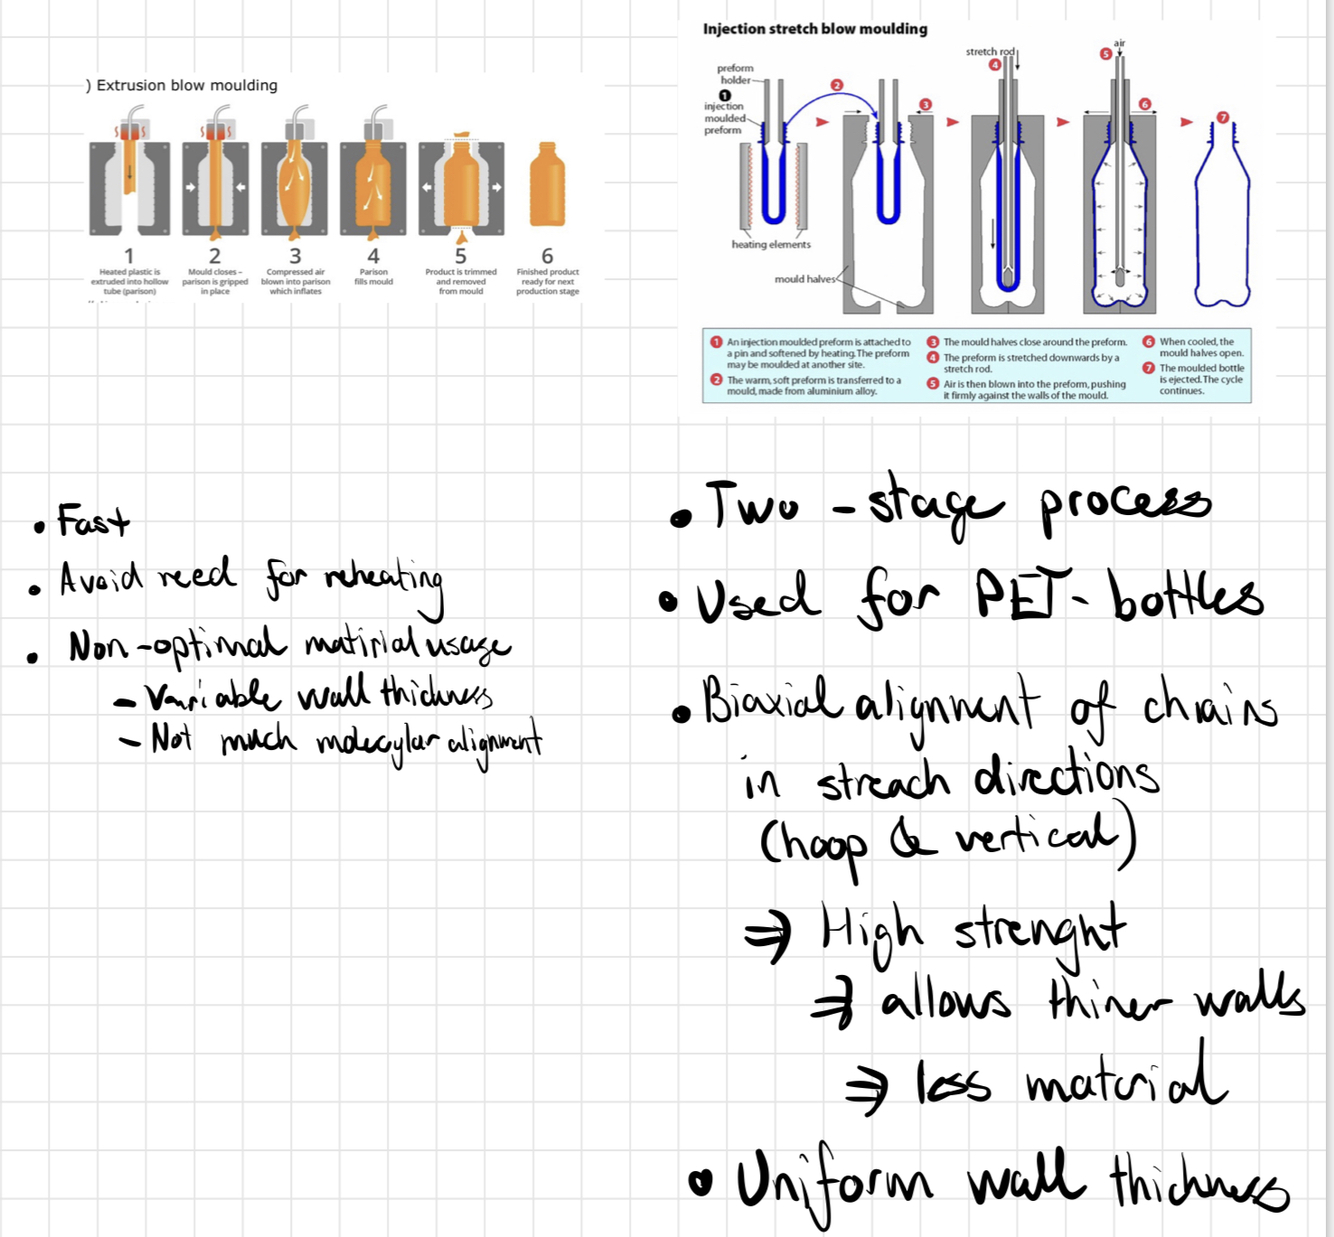 ) Extrusion blow moulding
1
Heated plastic is
extruded into hollow
tube (parison)
2
Mould closes –
parison is gripped
in place
3
Compressed air
blown into parison
which inflates
4
Parison
fills mould
5
Product is trimmed
and removed
from mould
6
Finished product
ready for next
production stage
• Fast
• Avoid need for reheating
• Non-optimal matirial usage
– Variable wall thickness
– Not much molecylar alignment
Injection stretch blow moulding
preform
holder
1
injection
moulded
preform
heating elements
2
mould halves
3
stretch rod
4
air
5
6
7
1 An injection moulded preform is attached to
a pin and softened by heating. The preform
may be moulded at another site.
2 The warm, soft preform is transferred to a
mould, made from aluminium alloy.
3 The mould halves close around the preform.
4 The preform is stretched downwards by a
stretch rod.
5 Air is then blown into the preform, pushing
it firmly against the walls of the mould.
6 When cooled, the
mould halves open.
7 The moulded bottle
is ejected. The cycle
continues.
• Two - stage process
• Used for PET- bottles
• Biaxial alignment of chains
in streach directions
(hoop & vertical)
⇒ High strenght
⇒ allows thiner walls
⇒ less material
• Uniform wall thickness